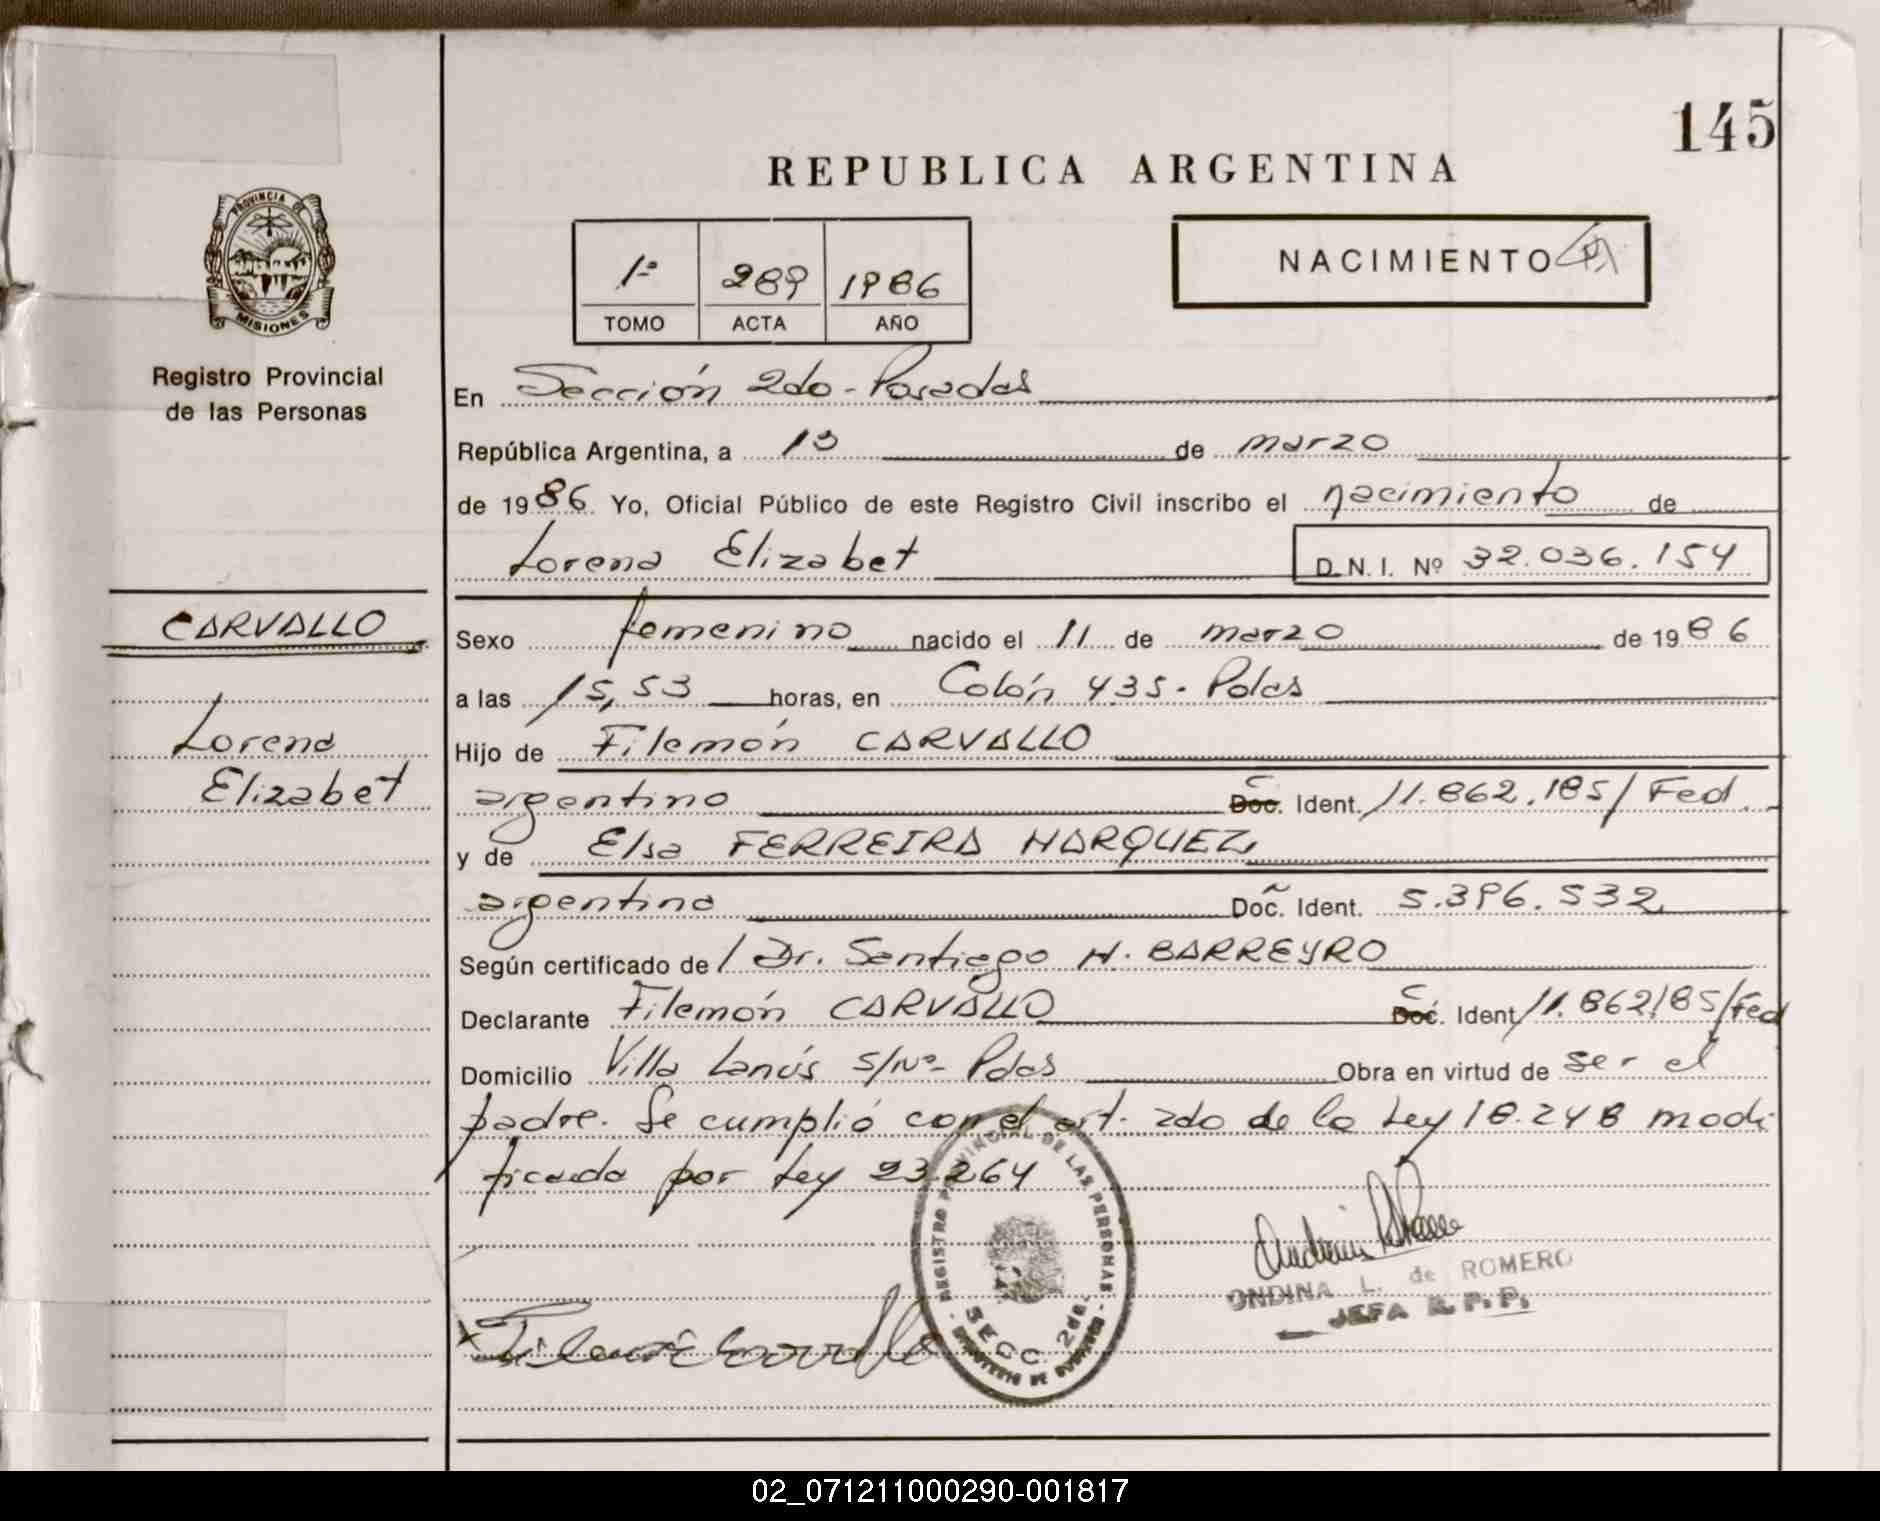 145
REPUBLICA ARGENTINA
PROVINCIA DE
MISIONES
Registro Provincial
de las Personas
1º 289 1986
TOMO ACTA AÑO
NACIMIENTO
En Sección 2do - Posadas
República Argentina, a 13 de marzo
de 1986. Yo, Oficial Público de este Registro Civil inscribo el nacimiento de
Lorena Elizabet D.N.I. Nº 32.036.154
CARVALLO
Lorena
Elizabet
Sexo femenino nacido el 11 de marzo de 1986
a las 15,53 horas, en Colón 435 - Pdas
Hijo de Filemón CARVALLO
argentino Doc. C Ident. 11.862.185/Fed.
y de Elsa FERREIRA MARQUEZ,
argentina Doc. Ident. 5.396.532
Según certificado de / Dr. Santiago H. BARREYRO
Declarante Filemón CARVALLO Doc. C Ident. 11.862185/Fed
Domicilio Villa Lanús s/Nº - Pdas Obra en virtud de ser el
padre. Se cumplió con el art. 2do de la Ley 18.248 modi
ficada por Ley 23.264
REGISTRO PROVINCIAL DE LAS PERSONAS
SECC. 2da.
ONDINA L. de ROMERO
JEFA R.P.P.
02_071211000290-001817